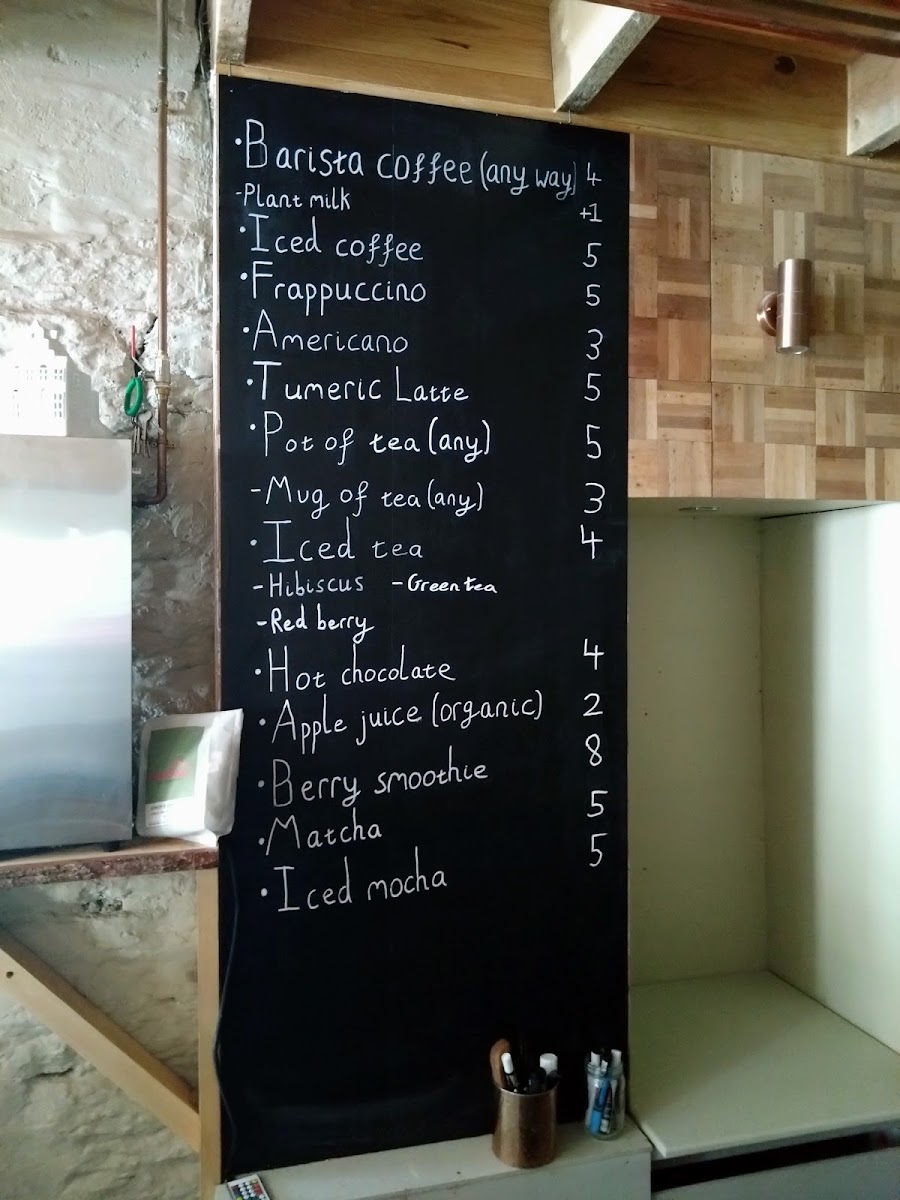 • Barista coffee (any way) 4
- Plant milk +1
• Iced coffee 5
• Frappuccino 5
• Americano 3
• Tumeric Latte 5
• Pot of tea (any) 5
- Mug of tea (any) 3
• Iced tea 4
- Hibiscus - Green tea
- Red berry
• Hot chocolate 4
• Apple juice (organic) 2
• Berry smoothie 8
• Matcha 5
• Iced mocha 5